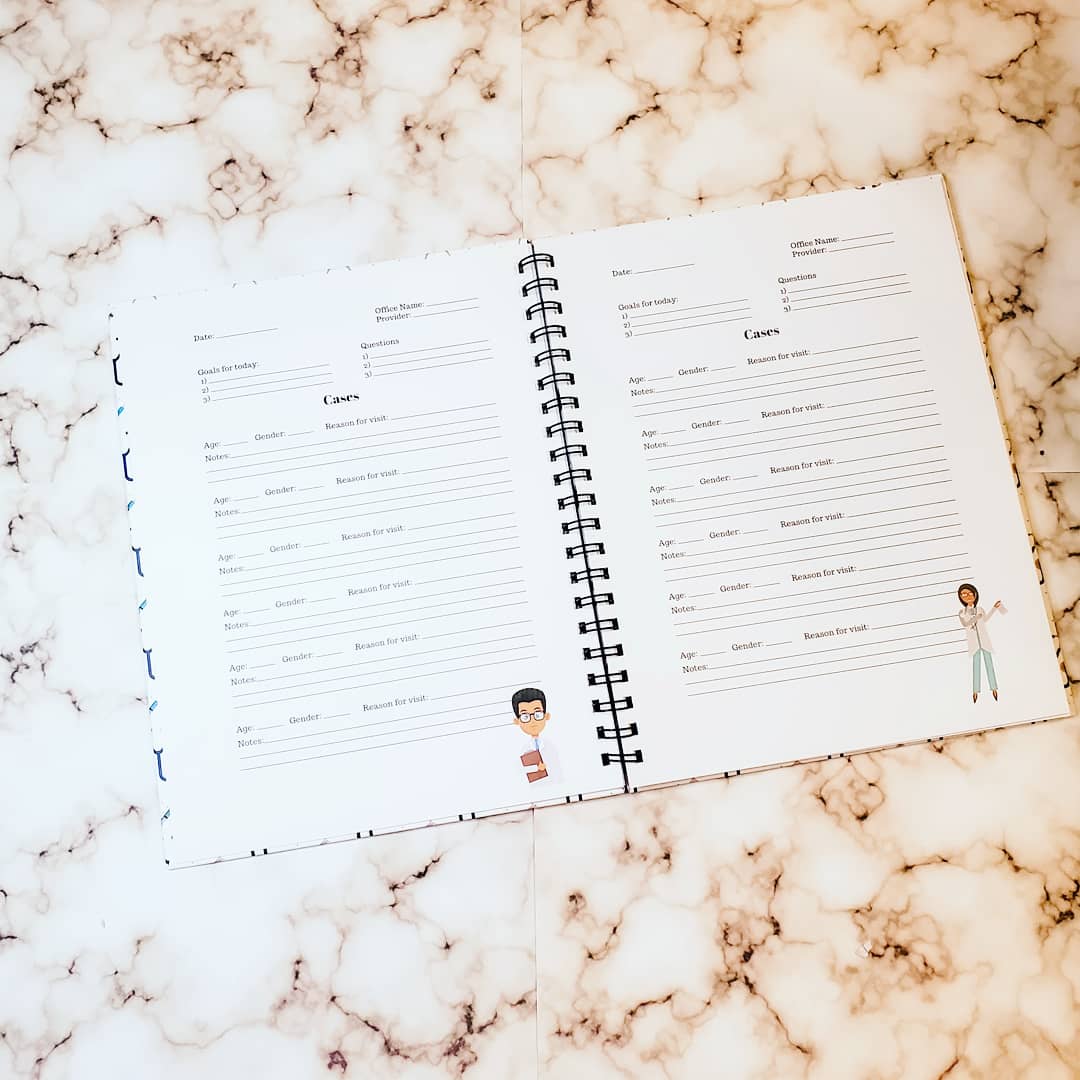 Office Name: ____________
Provider: ____________
Date: ____________
Questions
Goals for today:
1) ____________
1) ____________
2) ____________
2) ____________
3) ____________
3) ____________
Cases
Age: _____ Gender: _____ Reason for visit: ____________
Notes: ____________
Age: _____ Gender: _____ Reason for visit: ____________
Notes: ____________
Age: _____ Gender: _____ Reason for visit: ____________
Notes: ____________
Age: _____ Gender: _____ Reason for visit: ____________
Notes: ____________
Age: _____ Gender: _____ Reason for visit: ____________
Notes: ____________
Age: _____ Gender: _____ Reason for visit: ____________
Notes: ____________
Office Name: ____________
Provider: ____________
Date: ____________
Questions
Goals for today:
1) ____________
1) ____________
2) ____________
2) ____________
3) ____________
3) ____________
Cases
Age: _____ Gender: _____ Reason for visit: ____________
Notes: ____________
Age: _____ Gender: _____ Reason for visit: ____________
Notes: ____________
Age: _____ Gender: _____ Reason for visit: ____________
Notes: ____________
Age: _____ Gender: _____ Reason for visit: ____________
Notes: ____________
Age: _____ Gender: _____ Reason for visit: ____________
Notes: ____________
Age: _____ Gender: _____ Reason for visit: ____________
Notes: ____________